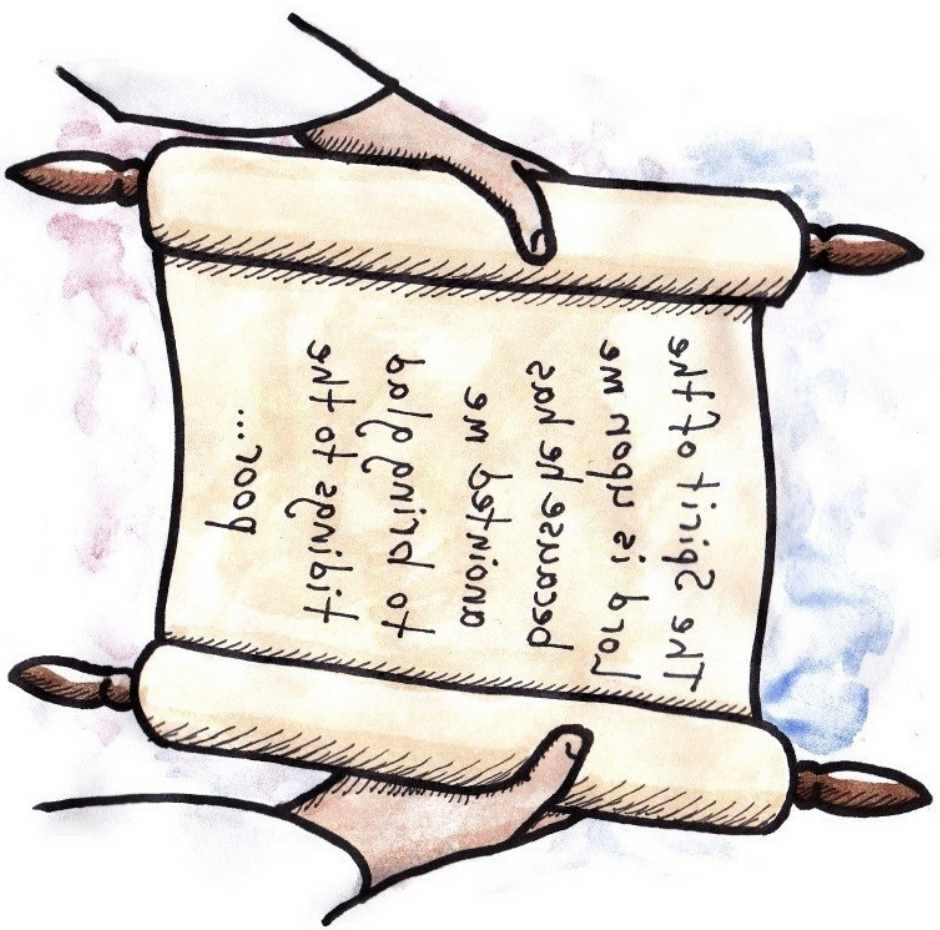 The Spirit of the
Lord is upon me
because he has
anointed me
to bring glad
tidings to the
poor...